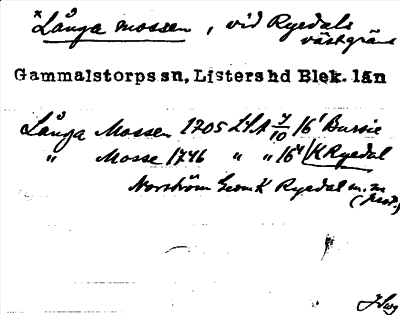 *Långa mossen, vid Ryedals
västgräns
Gammalstorps sn, Listers hd Blek. län
Långa Mossen 1705 LSA 7/10 16' Bussie
" Mosse 1746 " " 16" K Ryedal
Norström Geom K Ryedal m.m